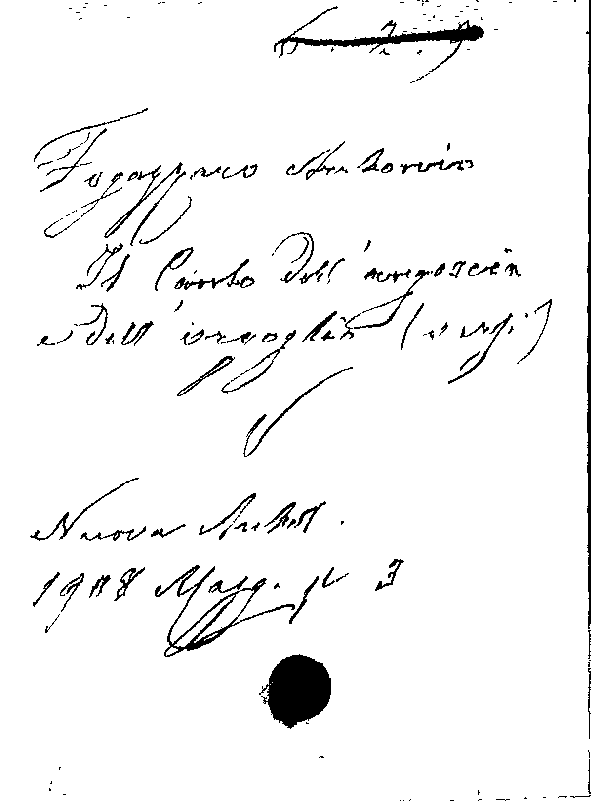 Fogazzaro Antonio
Il Canto dell'angoscia
e dell'orgoglio (versi)
Nuova Antol.
1908 Magg. p 3